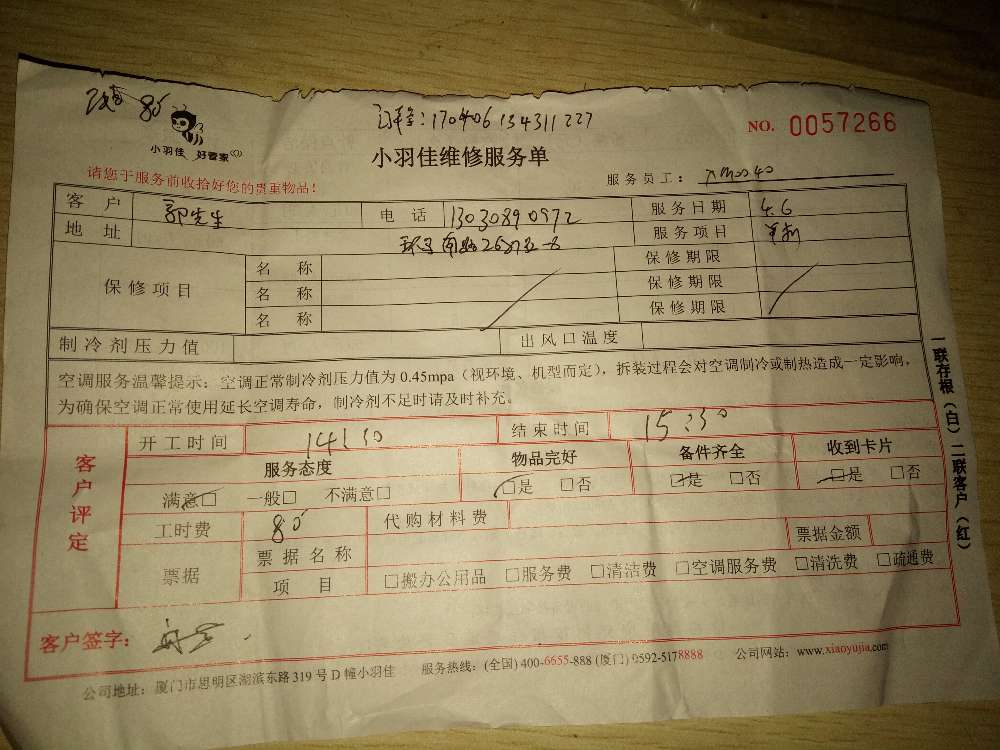 85
小羽佳 好管家
170406134311227
NO. 0057266
小羽佳维修服务单
请您于服务前收拾好您的贵重物品！
服务员工：
客户 郭先生 电话 13030890972 服务日期 4.6
地址 服务项目
保修项目 名称 保修期限
名称 保修期限
名称 保修期限
制冷剂压力值 出风口温度
空调服务温馨提示：空调正常制冷剂压力值为 0.45mpa（视环境、机型而定），拆装过程会对空调制冷或制热造成一定影响，
为确保空调正常使用延长空调寿命，制冷剂不足时请及时补充。
客户评定
开工时间 结束时间 15:30
服务态度 物品完好 备件齐全 收到卡片
满意□ 一般□ 不满意□ □是 □否 □是 □否 □是 □否
工时费 80 代购材料费
票据 票据名称 票据金额
项目 □搬办公用品 □服务费 □清洁费 □空调服务费 □清洗费 □疏通费
客户签字：
公司地址：厦门市思明区湖滨东路 319 号 D 幢小羽佳 服务热线：(全国) 400-6655-888 (厦门) 0592-5178888 公司网站：www.xiaoyujia.com
一联存根（白）二联客户（红）